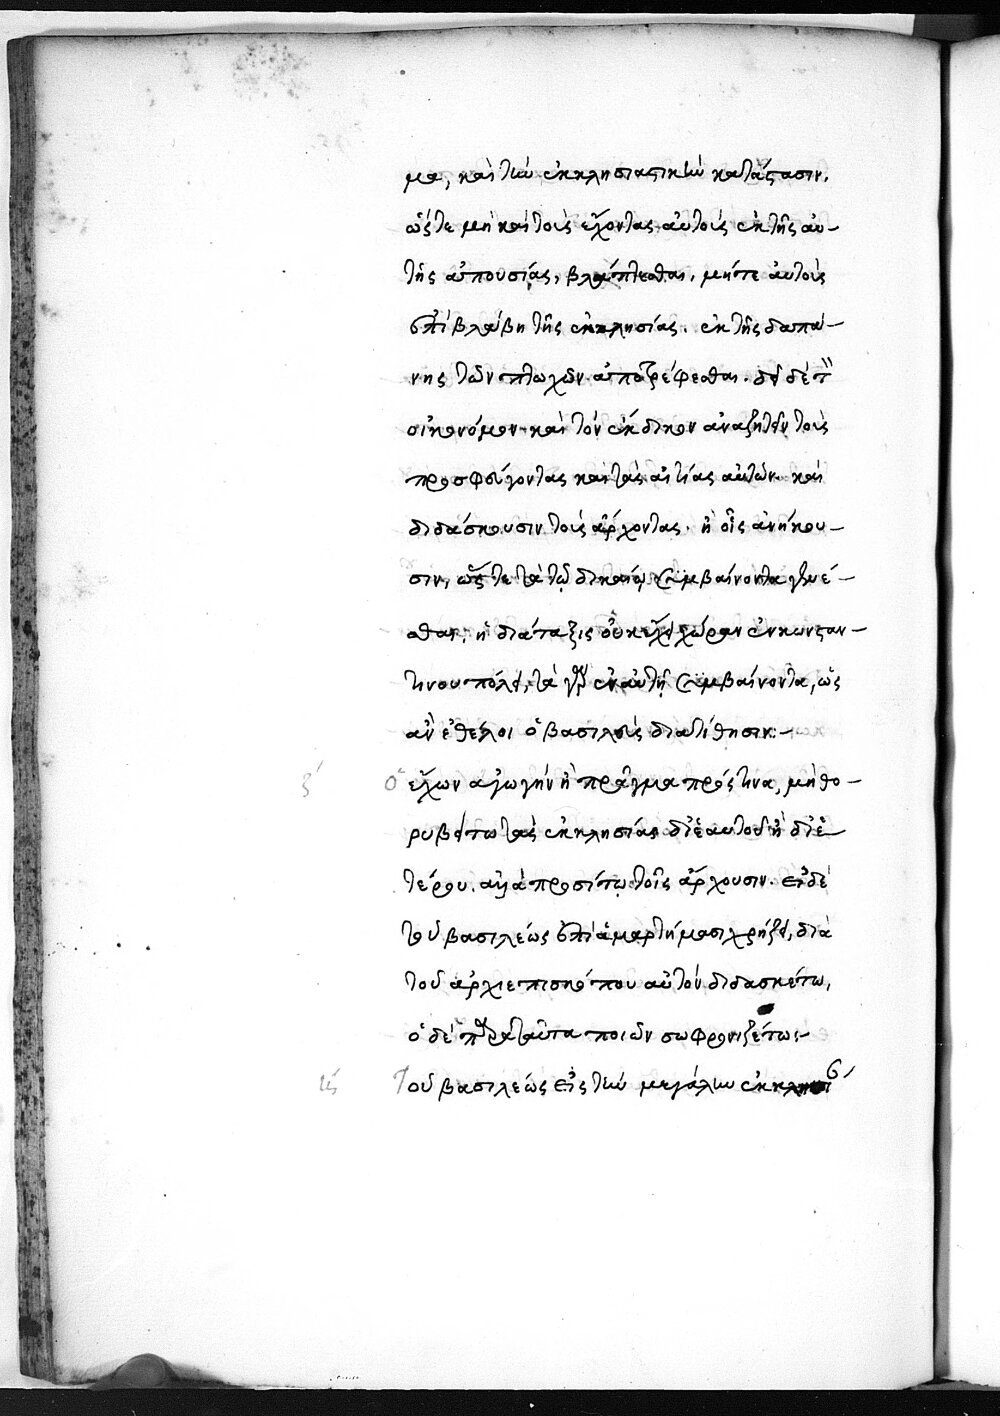 μα, καὶ τὴν ἐκκλησιαστικὴν κατάστασιν.
ὥστε μὴ καὶ τοὺς ἔχοντας αὐτοὺς ἐκ τῆς αὐ-
τῆς ἀπουσίας, βλάπτεσθαι. μήτε αὐτοὺς
ἐπὶ βλάβῃ τῆς ἐκκλησίας. ἐκ τῆς δαπά-
νης τῶν πτωχῶν ἀποτρέφεσθαι. δεῖ δὲ τὸν
οἰκονόμον καὶ τὸν ἔκδικον ἀναζητεῖν τοὺς
προσφεύγοντας καὶ τὰς αἰτίας αὐτῶν. καὶ
διδάσκουσιν τοὺς ἄρχοντας. ἢ οἷς ἀνήκου-
σιν, ὥστε τὰ τῷ δικαίῳ συμβαίνοντα γενέ-
σθαι. ἡ διάταξις οὐκ ἔχει χώραν ἐν κωνσταν-
τινουπόλει, τὰ γὰρ ἐν αὐτῇ συμβαίνοντα, ὡς
ἂν ἐθέλοι ὁ βασιλεὺς διατίθησιν:-
ξʹ Ὁ ἔχων ἀγωγὴν ἢ πρᾶγμα πρός τινα, μὴ θο-
ρυβείτω τὰς ἐκκλησίας δι' ἑαυτοῦ ἢ δι' ἑ-
τέρου. ἀλλὰ προσίτω τοῖς ἄρχουσιν. εἰ δὲ
τοῦ βασιλέως ἐπὶ ἁμαρτήμασι χρῄζει, διὰ
τοῦ ἀρχιεπισκόπου αὐτὸν διδασκέτω,
ὁ δὲ παρὰ ταῦτα ποιῶν σωφρονιζέτω:-
Τοῦ βασιλέως εἰς τὴν μεγάλην ἐκκλησί